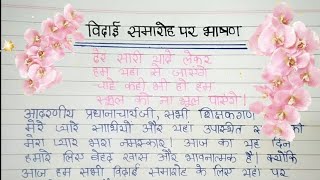 विदाई समारोह पर भाषण
ढेर सारी यादें लेकर
हम यहाँ से जाएंगे
चाहे कहीं भी हो हम
स्कूल को ना भूल पाएंगे।
आदरणीय प्रधानाचार्यजी, सभी शिक्षकगण,
मेरे प्यारे साथियों और यहाँ उपस्थित को
मेरा प्यार भरा नमस्कार। आज का यह दिन
हमारे लिए बेहद खास और भावनात्मक है। क्योंकि
आज हम सभी विदाई समारोह के लिए यहाँ पर